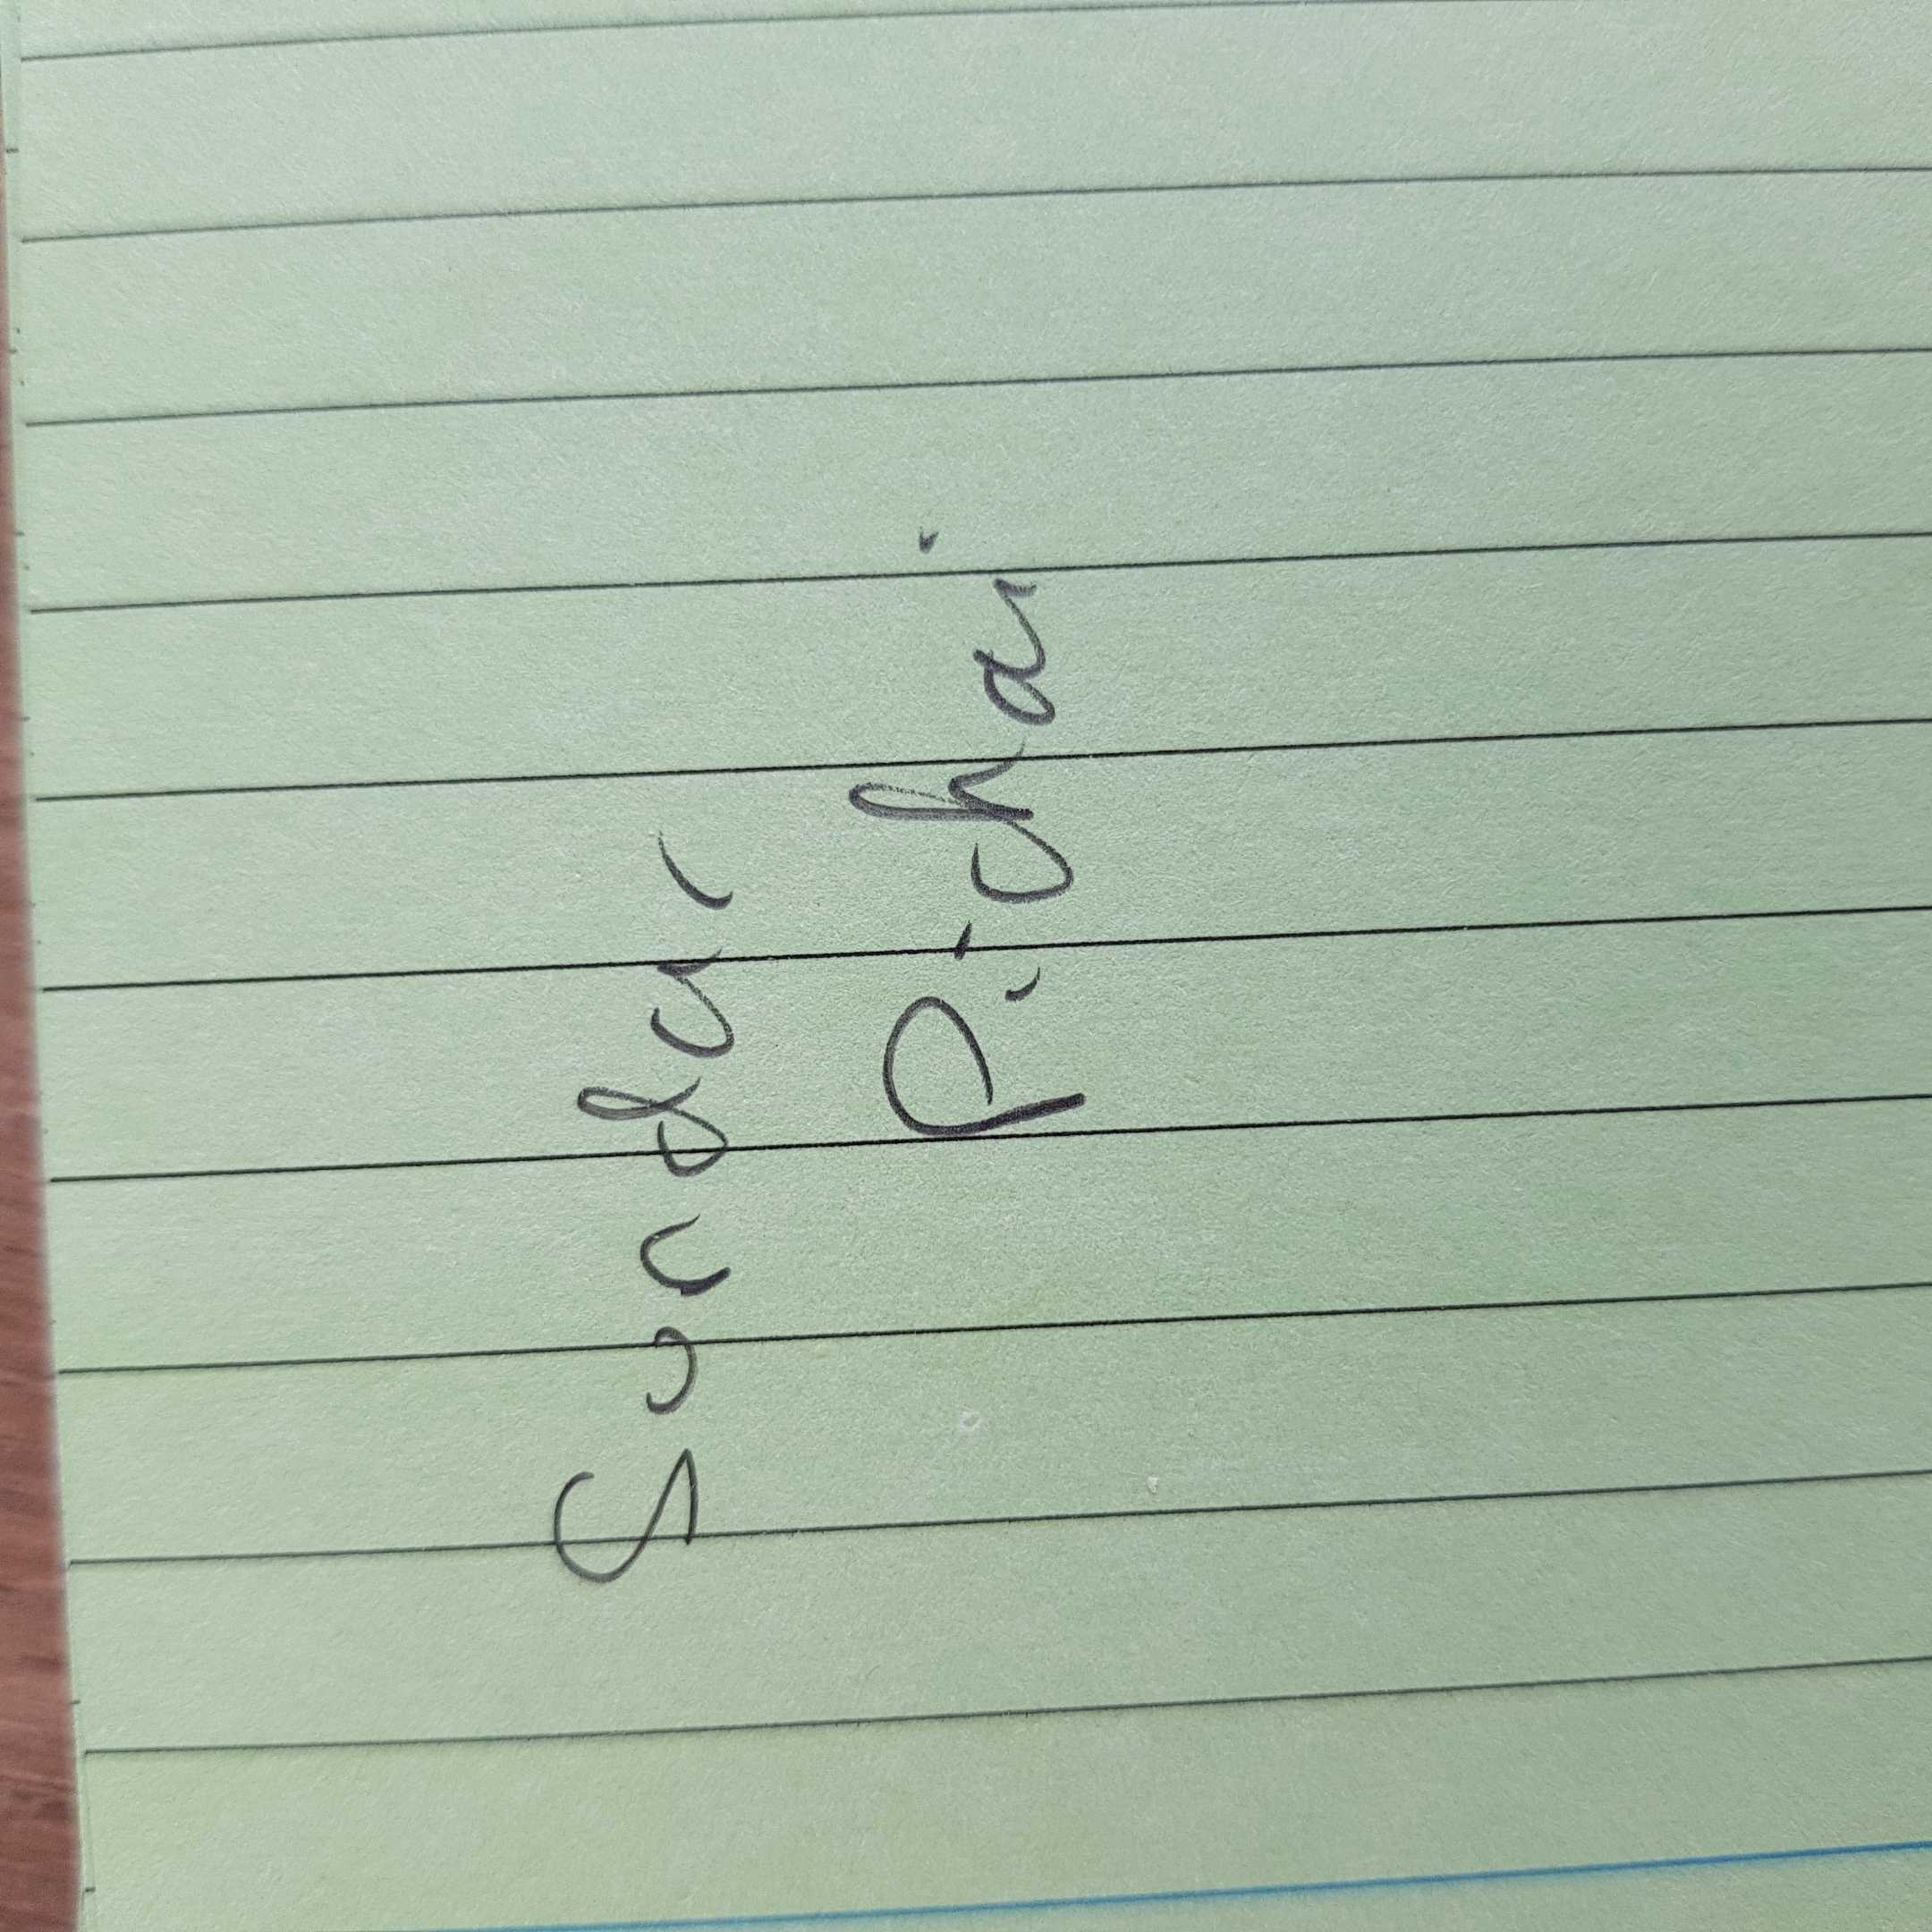 Sundar
Pichai